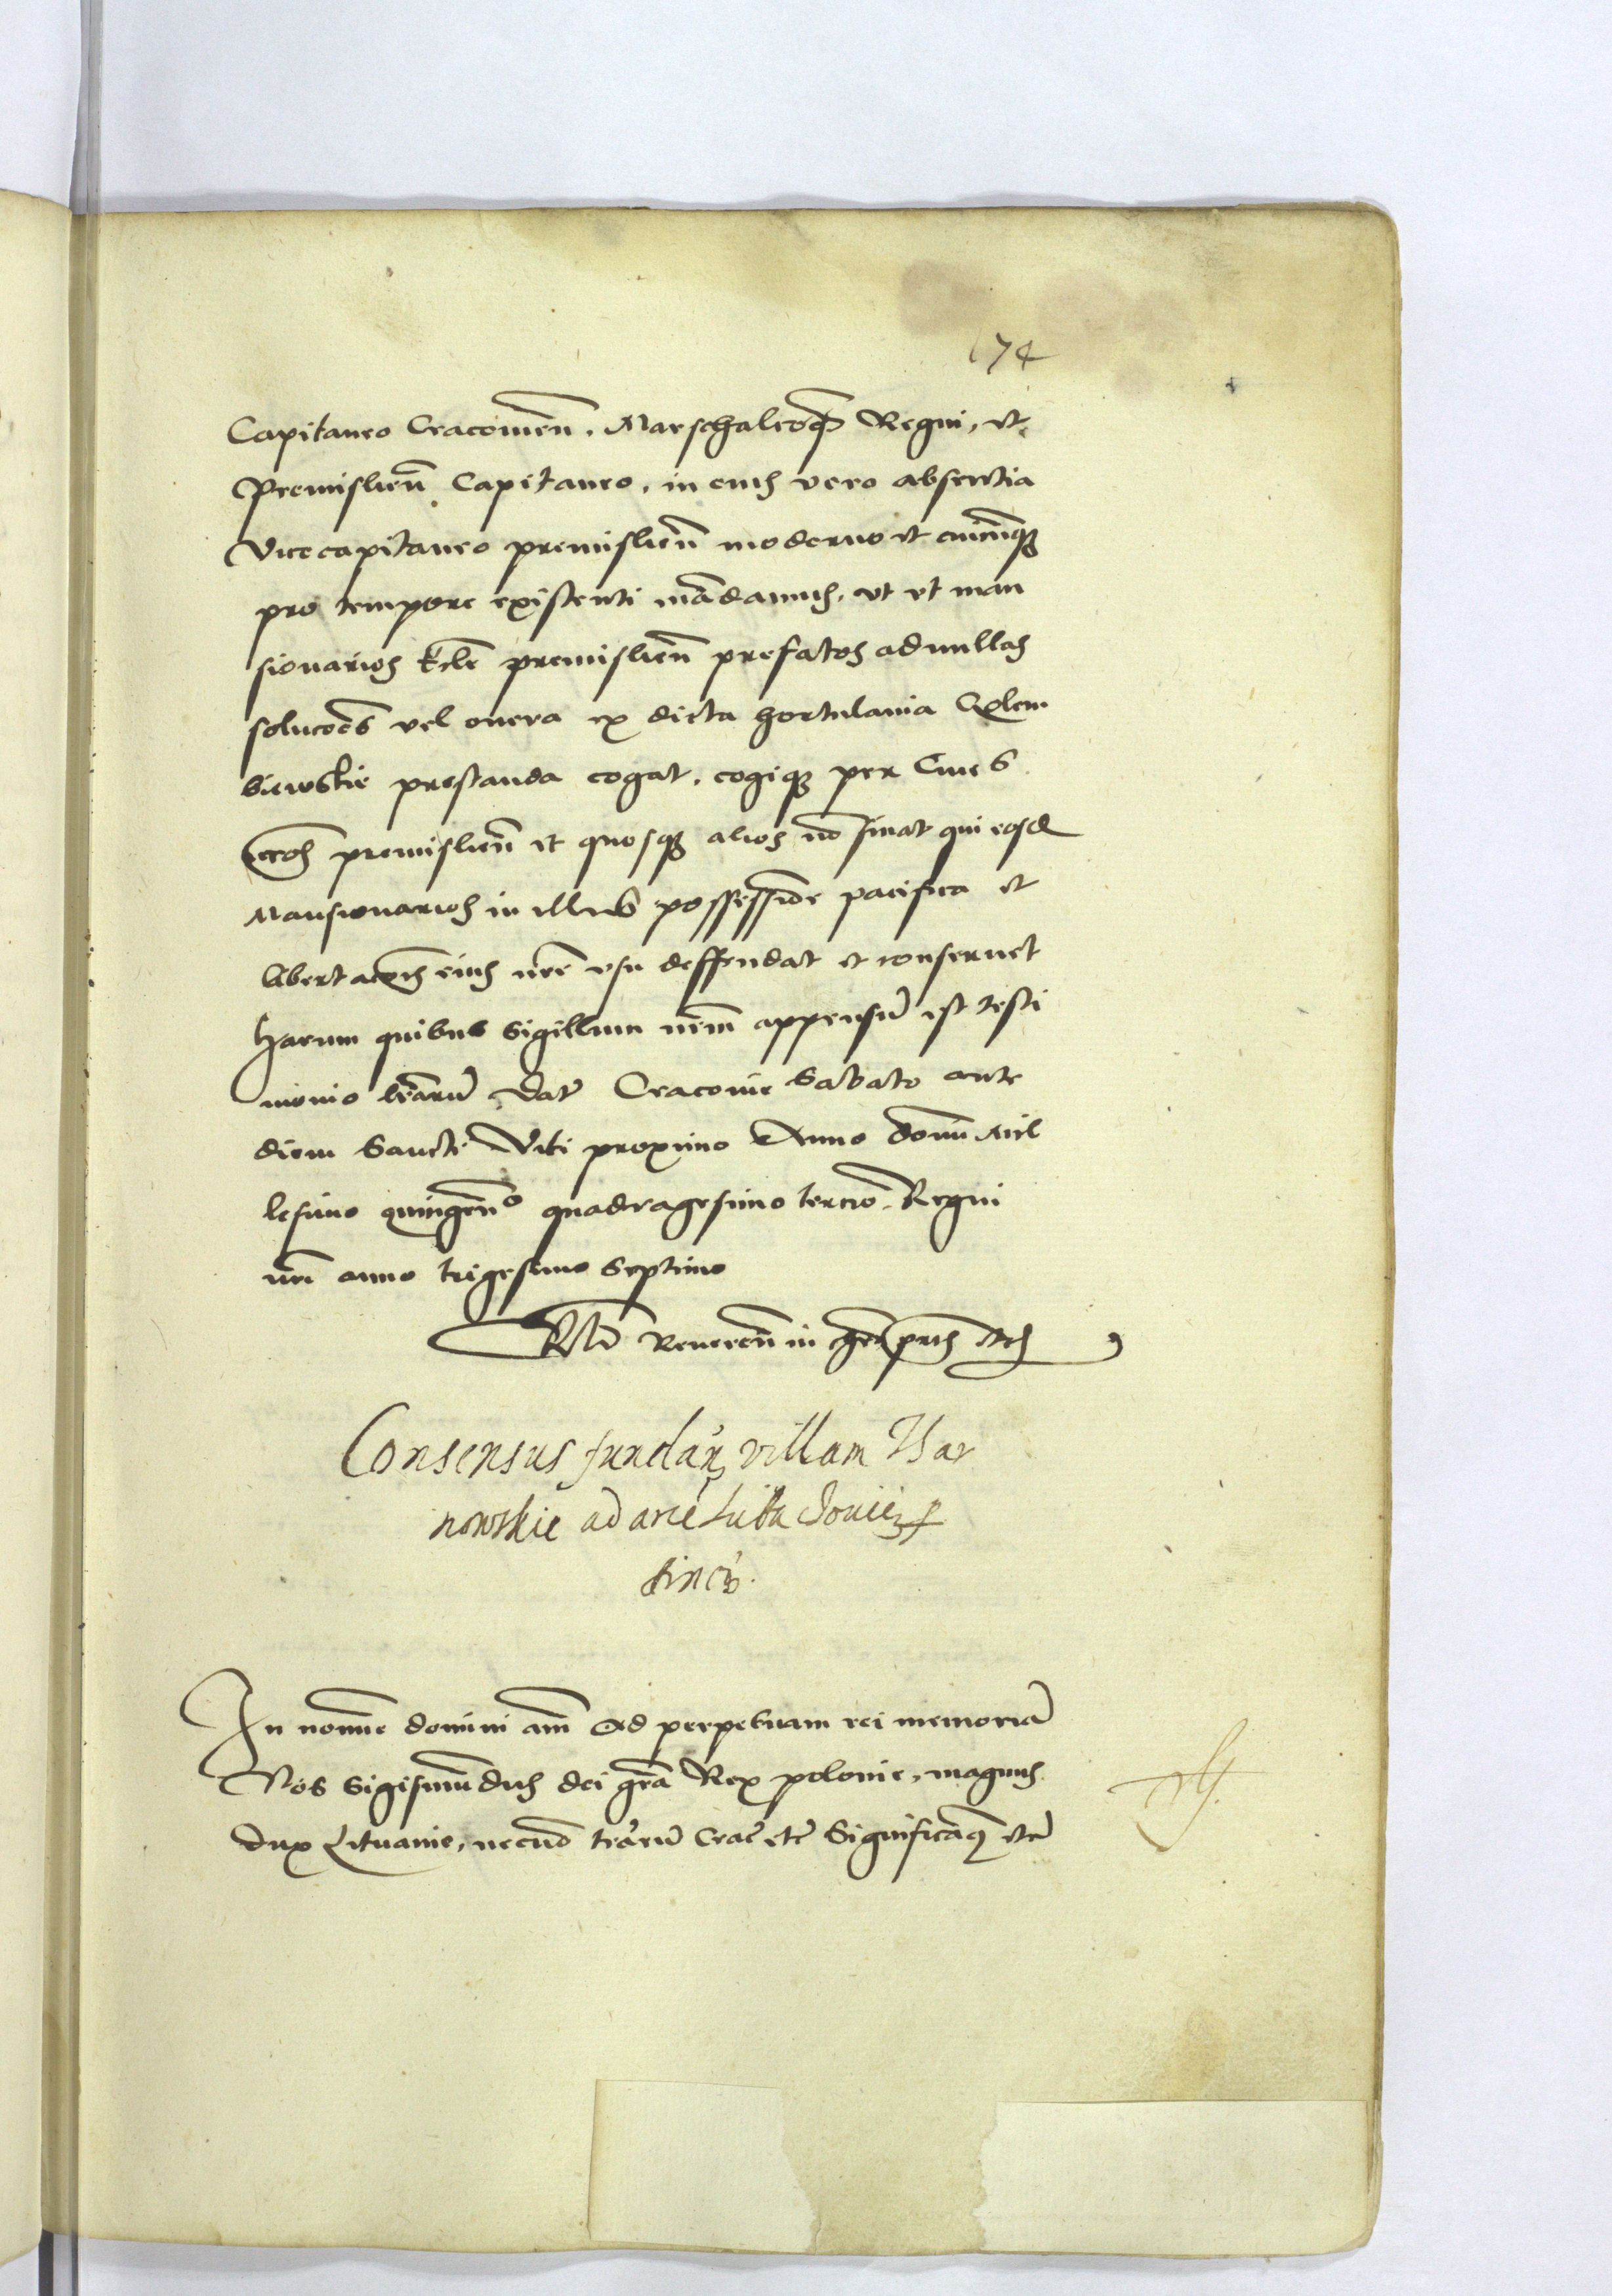 174
Capitaneo Cracouien̄. Marschalcoq̄ Regni, et
Premislien̄ Capitaneo, in cuius vero absentia
Vicecapitaneo premislien̄ moderno et cuicūq;
pro tempore existenti mādamus, vt vt man
sionarios Eccle premislien̄ prefatos ad nullas
solucōēs vel onera ex dicta hortulania Golem
biewskie prestanda cogat, cogiq; per Ciues
premislien̄ et quosq; alios nō sinat qui eosd
Mansionarios in illius possessiōe pacifica et
libertacōis eius nrē vsu deffendat et conseruet
Harum quibus Sigillum nrm̄ appensū est testi
monio lrārū Dat̄ Cracouie Sabato ante
diem Sancti Viti proximo Anno domī Mil
lesimo quingen̄o quadragesimo tercio. Regni
nrī anno trigesimo Septimo
Rlō Reueren̄ in chrō pris etc
Consensus fundan̄ villam Thar
nowskie ad arcē Luba
tinen̄.
In nomīe domini am̄ Ad perpetuam rei memoriā
Nos Sigismūdus dei grā Rex polonie, magnus
dux Lituanie, necnō trārū Crac̄ etc̄ Significāq; etc̄